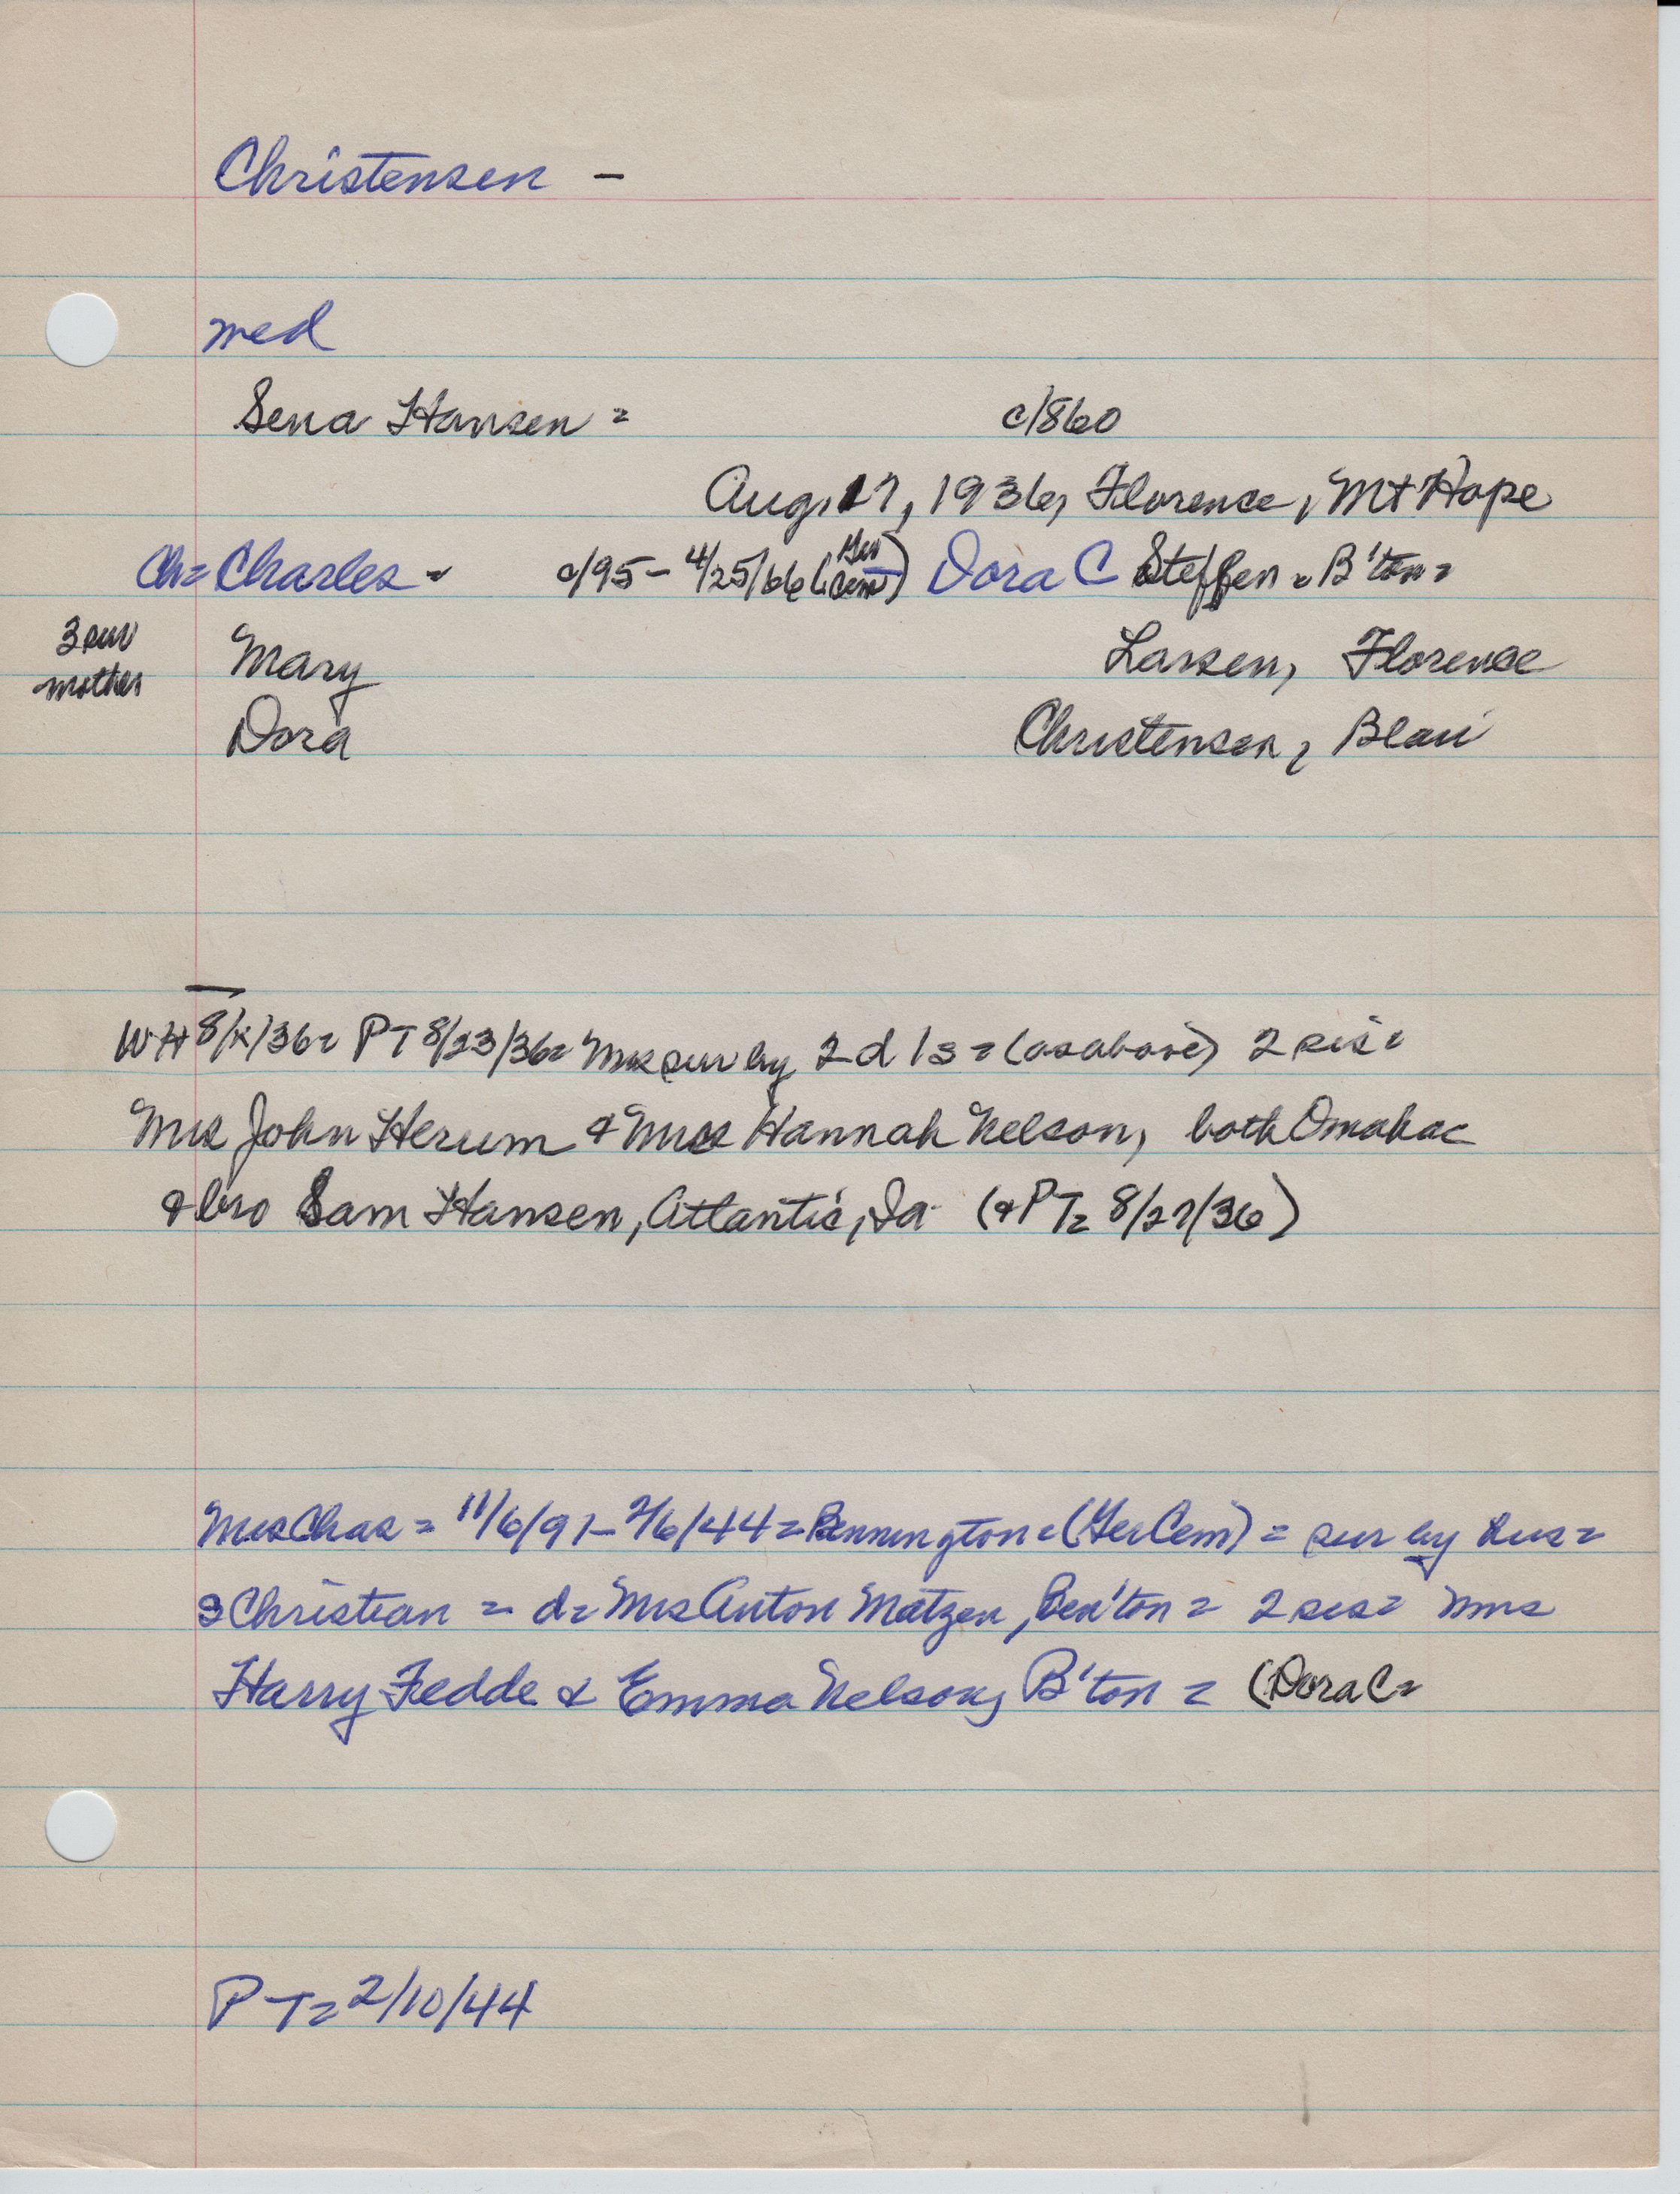 Christensen -
med
Sena Hansen = c1860
Aug. 17, 1936, Florence, Mt Hope
Ch = Charles - c/95 - 4/25/66 (Ger Cem) Dora C Steffen = B'ton =
3 sur mother
Mary Larsen, Florence
Dora Christensen, Blair
WH 8/ /36 = PT 8/23/36 = Mrs sur by 2 d 1 s = (as above) 2 sis =
Mrs John Herum & Mrs Hannah Nelson, both Omaha
& bro Sam Hansen, Atlantic, Ia (& PT = 8/27/36)
Mrs Chas = 11/6/91 - 2/6/44 = Bennington = (Ger Cem) = sur by hus =
s Christian = d = Mrs Anton Matzen, Ben'ton = 2 sis = Mrs
Harry Fedde & Emma Nelson, B'ton = (Dora C =
PT = 2/10/44